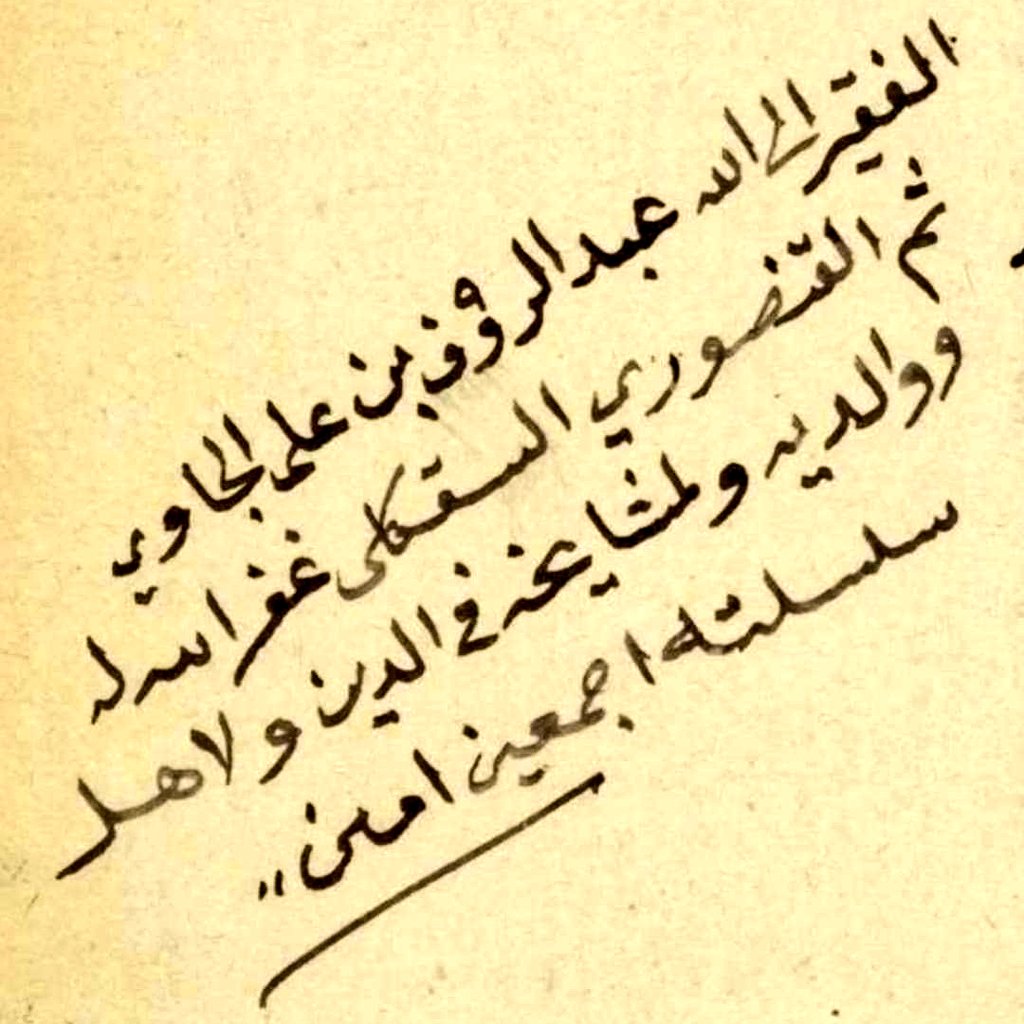 الفقير الى الله عبد الرؤف بن علي الجاوي
ثم الفنصوري السنقكلى غفر الله له
ووالديه ولمشايخه في الدين ولاهل
سلسلته اجمعين امين